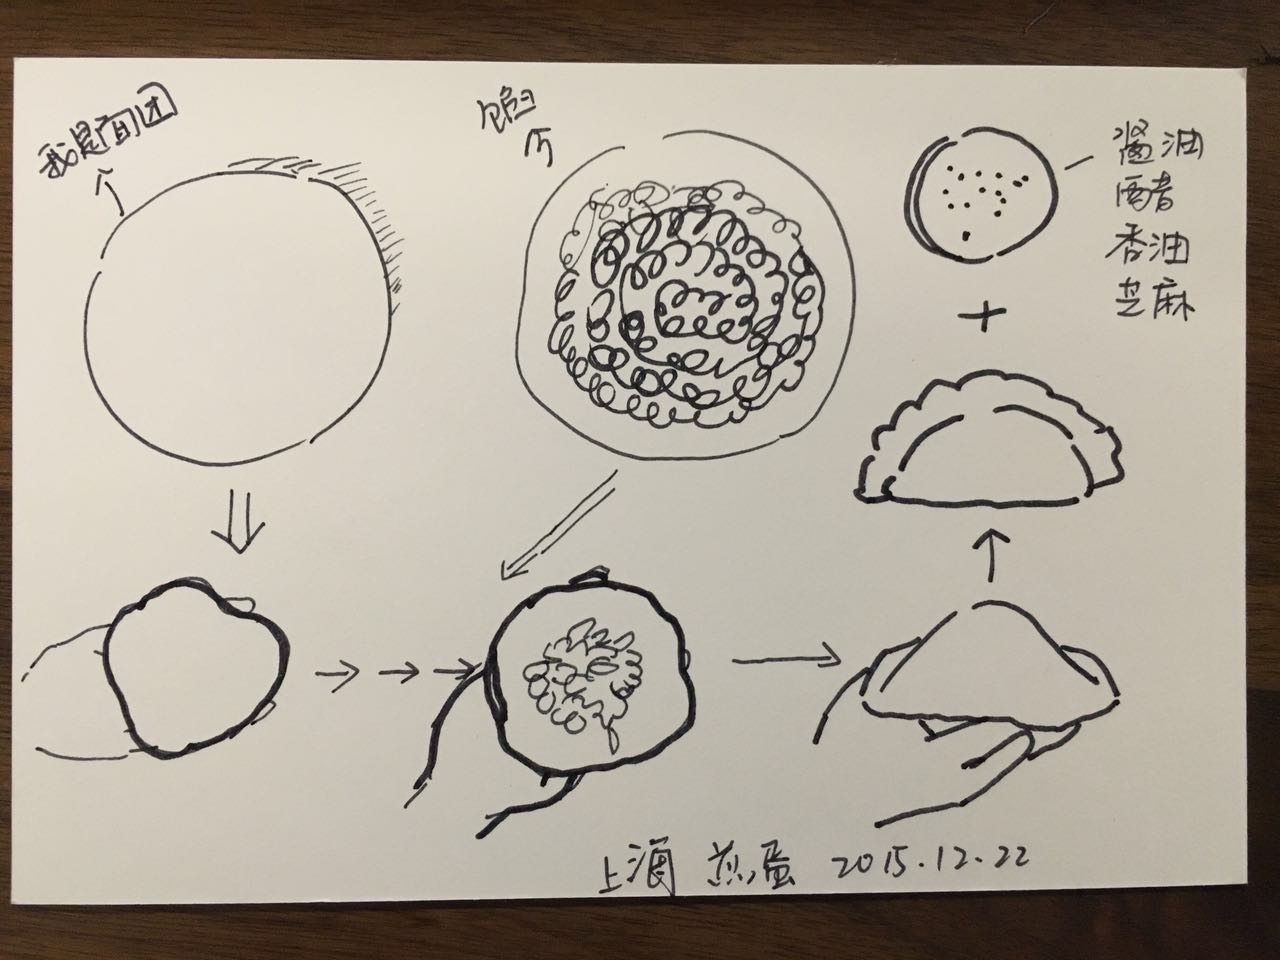 我是面团
馅
酱油
醋
香油
芝麻
上海 煎蛋 2015.12.22